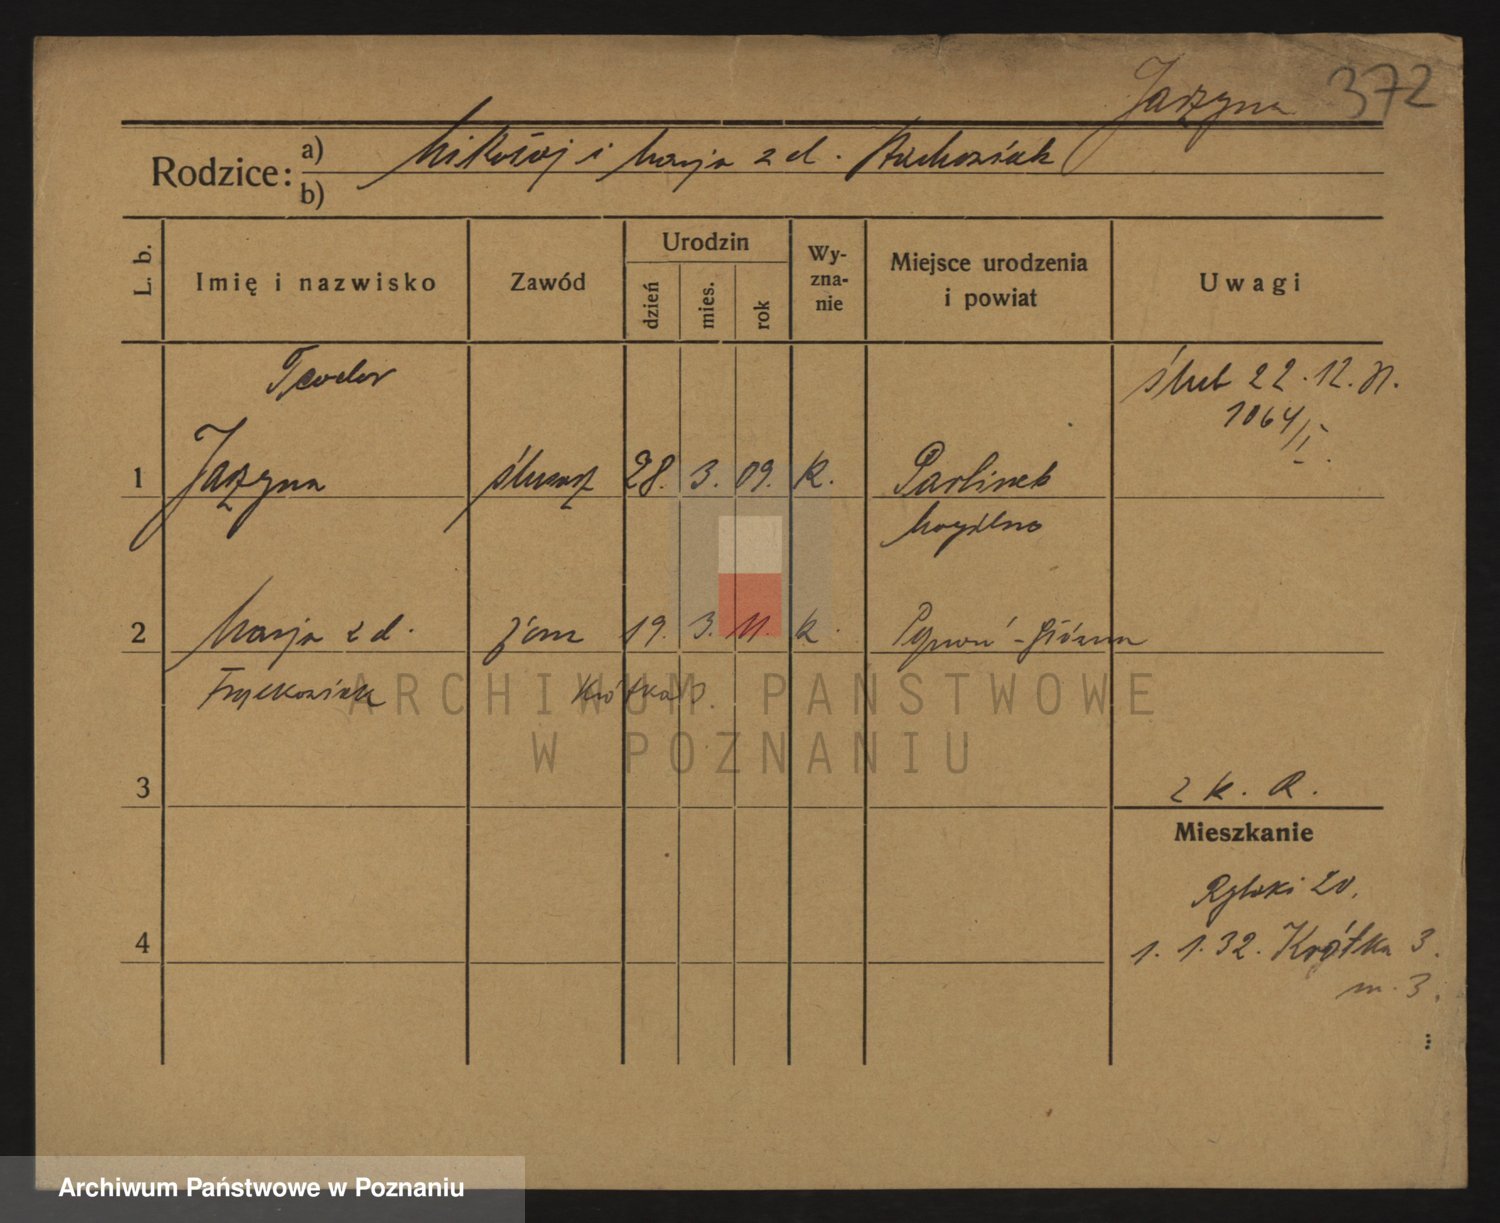 Jarzyna 372
Rodzice: a) Mikołaj i Marja z d. Stachowiak
b)
L. b. Imię i nazwisko Zawód Urodzin dzień mies. rok Wyznanie Miejsce urodzenia i powiat Uwagi
Teodor ślub 22.12.31.
1064/I.
1 Jarzyna ślusarz 28. 3. 09. k. Parlinek
Mogilno
2 Marja z d. żona 19. 3. 11. k. Poznań - Główna
Frąckowiak Krótka 3.
ARCHIWUM PAŃSTWOWE
W POZNANIU
3 2 k. R.
Mieszkanie
Rybaki 20.
4 1. 1. 32. Krótka 3.
m. 3.
Archiwum Państwowe w Poznaniu